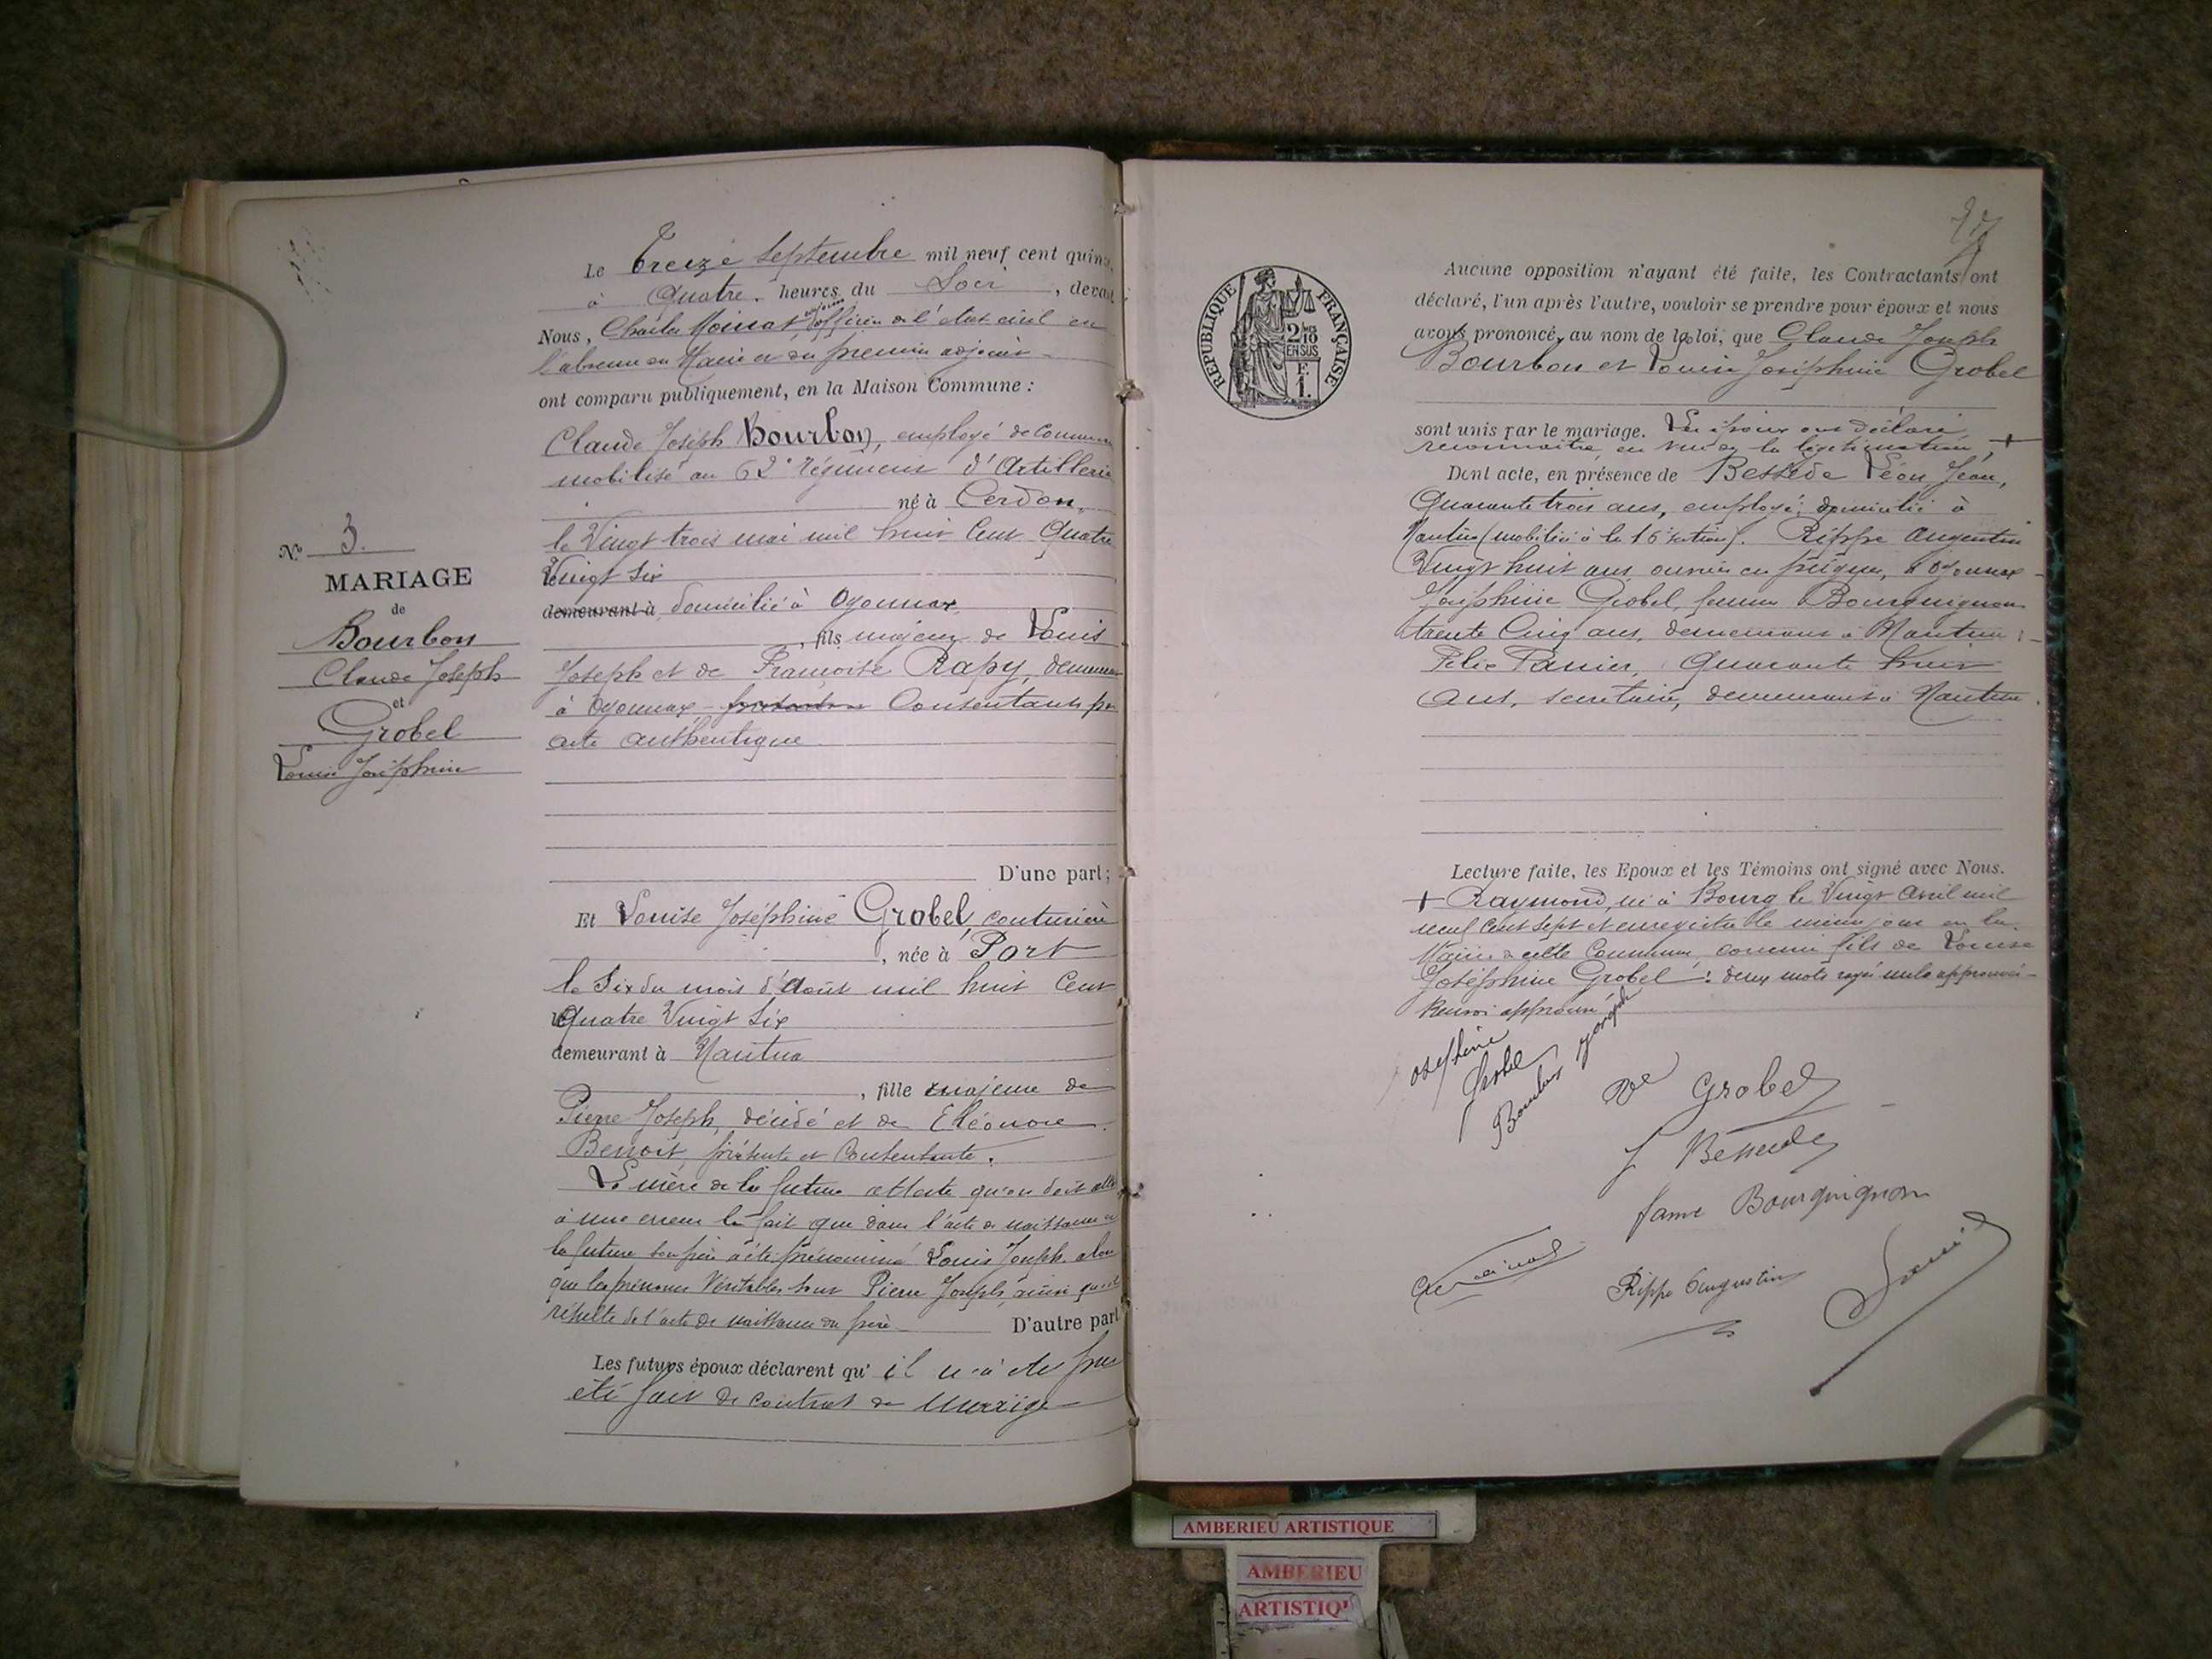 Le Treize Septembre mil neuf cent quinze,
à Quatre heures du Soir, devant
Nous, Charles Moinat, officier de l'état civil en
l'absence du Maire et du premier adjoint
ont comparu publiquement, en la Maison Commune :
Claude Joseph Bourbon, employé de commerce
mobilisé au 62e régiment d'Artillerie
né à Cerdon,
le Vingt trois mai mil huit Cent Quatre
Vingt Six
demeurant à domicilié à Oyonnax
, fils majeur de Louis
Joseph et de Françoise Rapy, demeurant
à Oyonnax Consentants par
acte authentique
D'une part;
Et Louise Joséphine Grobel, couturière
, née à Port
le Six du mois d'Août mil huit Cent
Quatre Vingt Six
demeurant à Nantua
, fille majeure de
Pierre Joseph, décédé et de Eléonore
Benoit, présente et Consentante.
La mère de la future atteste qu'on doit
à une erreur le fait que dans l'acte de naissance de
la future son père a été prénommé Louis Joseph alors
que les prénoms Véritables sont Pierre Joseph, ainsi qu'il
résulte de l'acte de naissance du père D'autre part
Les futurs époux déclarent qu'il n'a
été fait de contrat de mariage
No 3.
MARIAGE
de
Bourbon
Claude Joseph
et
Grobel
Louise Joséphine
RÉPUBLIQUE FRANÇAISE
2/10
EN SUS
F.
1.
Aucune opposition n'ayant été faite, les Contractants ont
déclaré, l'un après l'autre, vouloir se prendre pour époux et nous
avons prononcé, au nom de la loi, que Claude Joseph
Bourbon et Louise Joséphine Grobel
sont unis par le mariage. Les époux ont déclaré
reconnaitre, en vue de la légitimation, +
Dont acte, en présence de Bessède Léon, Jean,
Quarante trois ans, employé, domicilié à
Nantua (mobilisé à la 16e section). Rippe Augustin
Vingt huit ans, ouvrier en peignes, à Oyonnax
Joséphine Grobel, femme Bourguignon
trente Cinq ans, demeurant à Nantua
Félix Panier, Quarante huit
ans, secrétaire, demeurant à Nantua.
Lecture faite, les Epoux et les Témoins ont signé avec Nous.
+ Raymond, né à Bourg le Vingt Avril mil
neuf Cent Sept et enregistré le même jour en la
Mairie de cette Commune, comme fils de Louise
Joséphine Grobel : deux mots rayés nuls approuvés
Renvoi approuvé
Josephine
Grobel
Bourbon
Ve Grobel
Bessede
fame Bourguignon
Rippe Augustin
AMBERIEU ARTISTIQUE
AMBERIEU
ARTISTIQ